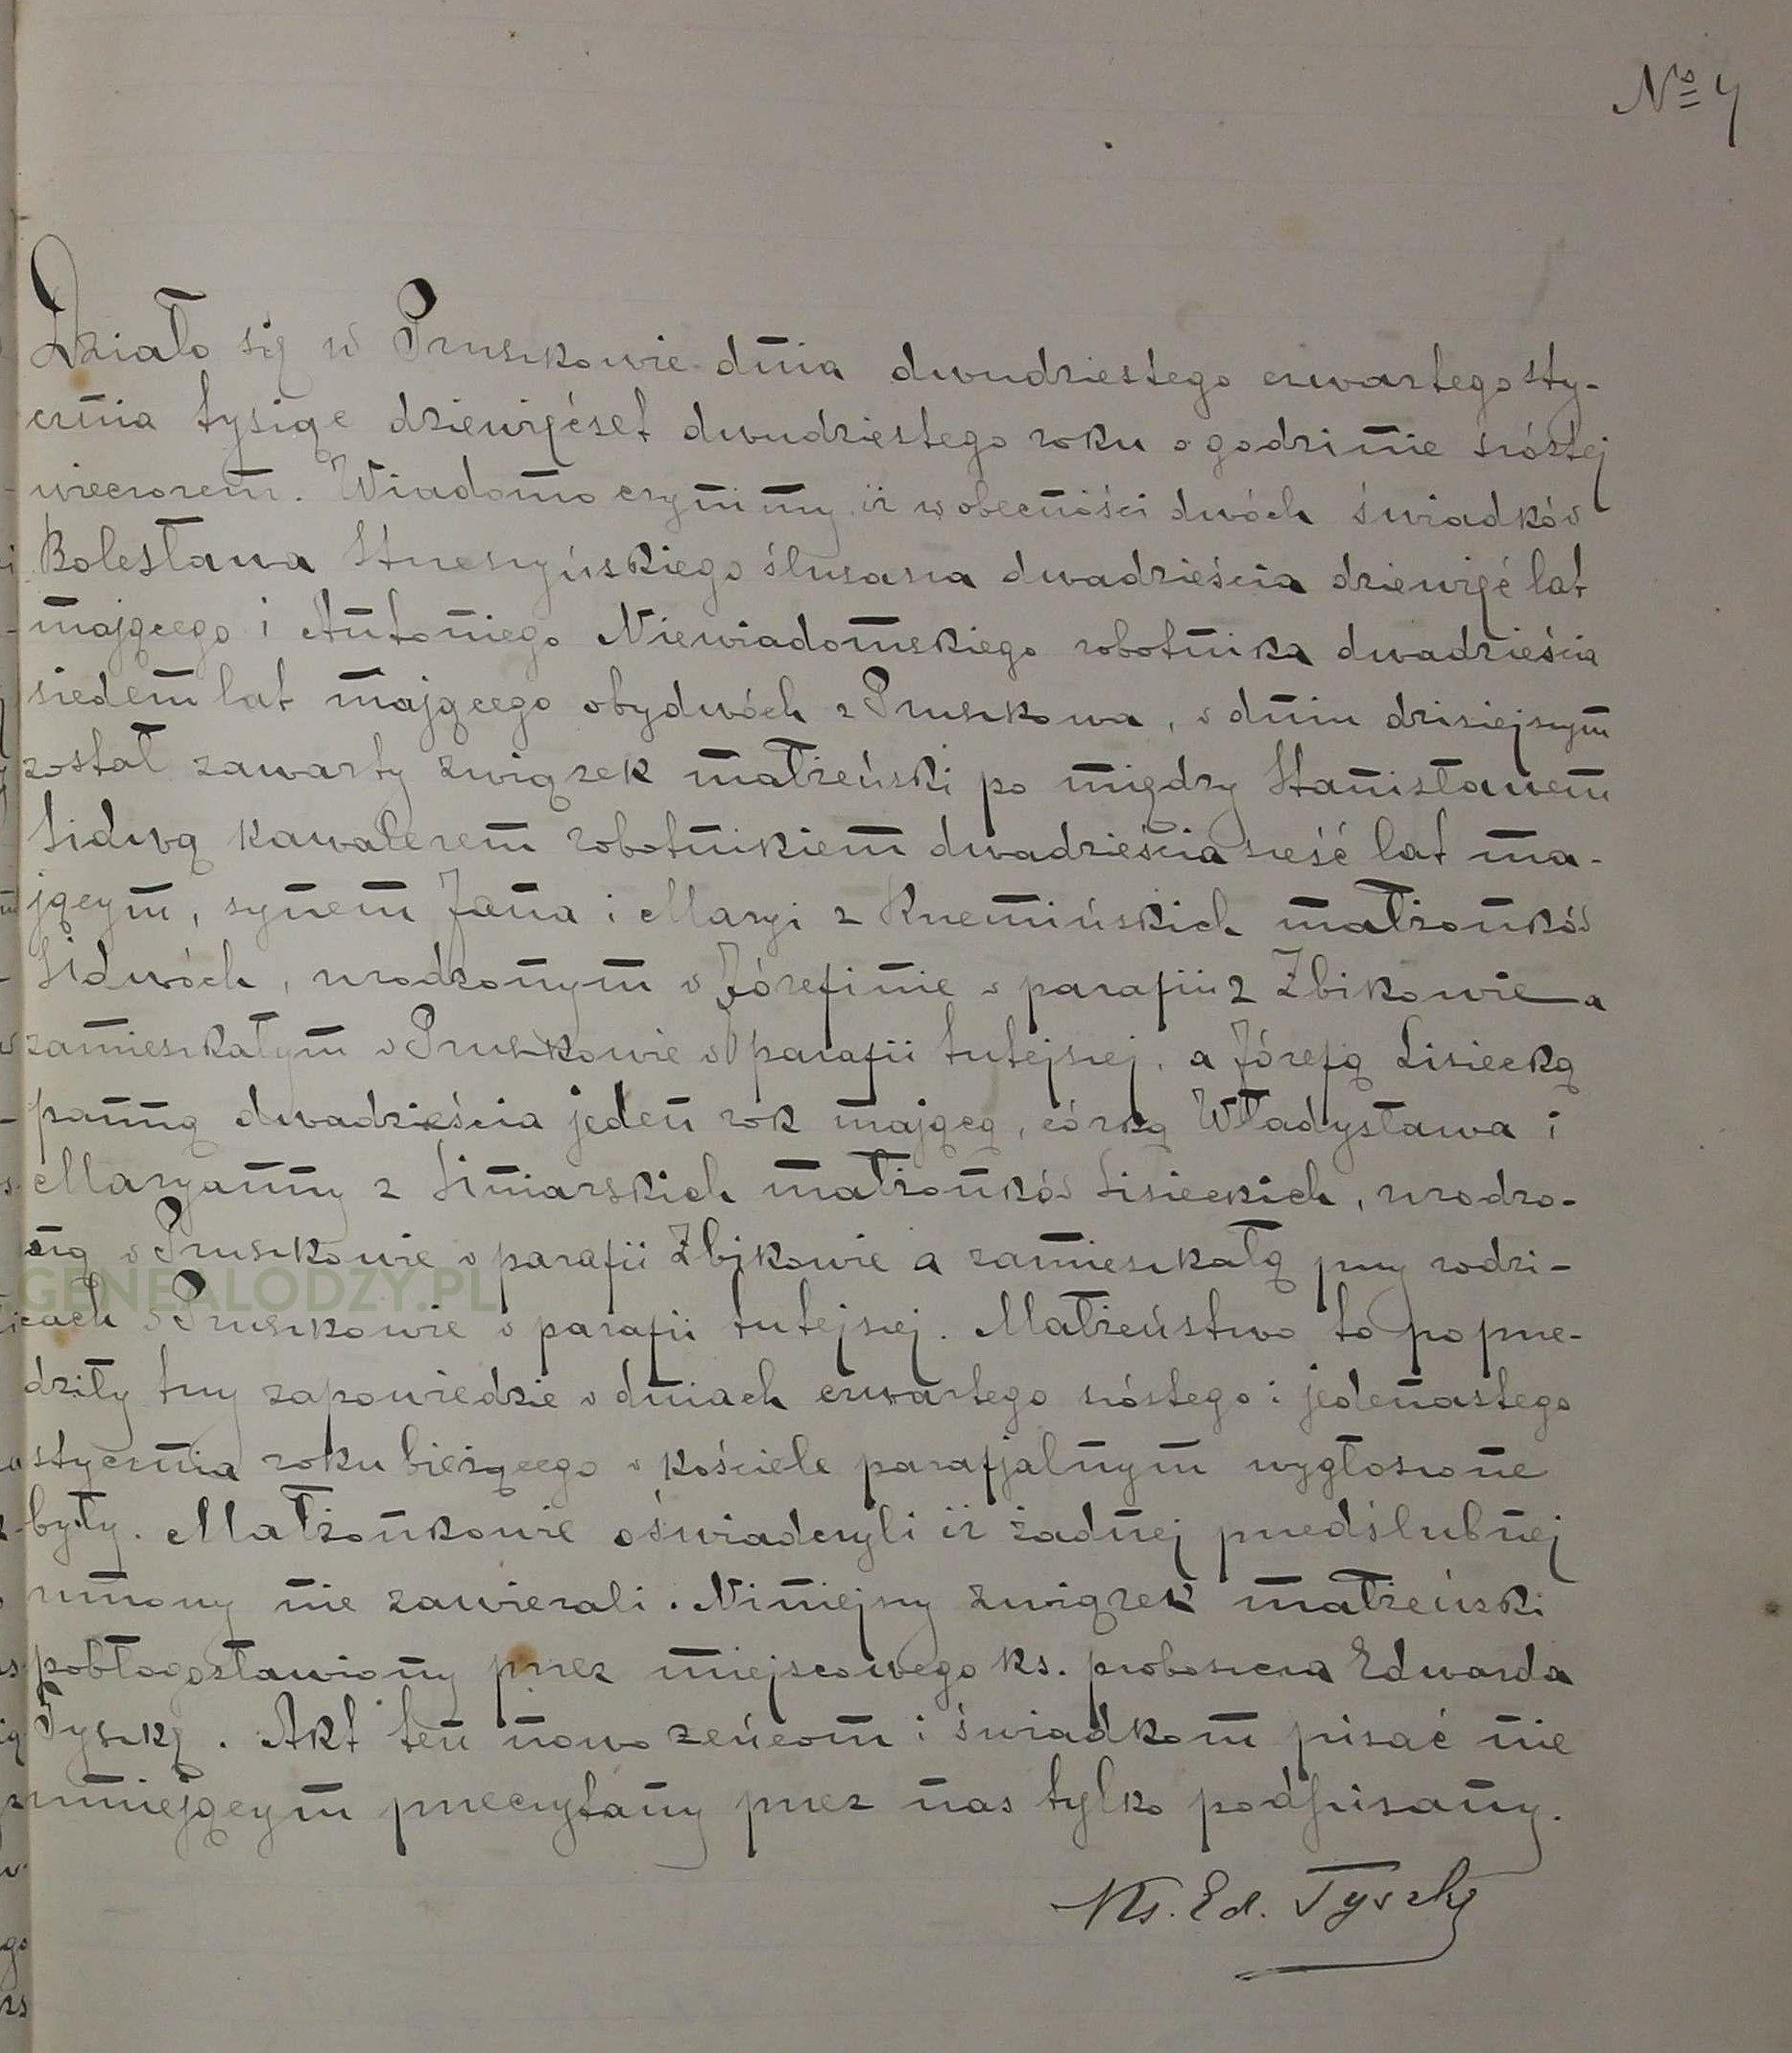 № 4
Działo się w Pruszkowie dnia dwudziestego czwartego sty-
cznia tysiąc dziewięćset dwudziestego roku o godzinie szóstej
wieczorem. Wiadomo czynimy iż w obecności dwóch świadków
Bolesława Struszyńskiego ślusarza dwadzieścia dziewięć lat
mającego i Antoniego Niewiadomskiego robotnika dwadzieścia
siedem lat mającego obydwóch z Pruszkowa, w dniu dzisiejszym
został zawarty związek małżeński po między Stanisławem
Lidwą kawalerem robotnikiem dwadzieścia sześć lat ma-
jącym, synem Jana i Maryi z Krzemińskich małżonków
Lidwóch, urodzonym w Józefinie w parafii z Żbikowie a
zamieszkałym w Pruszkowie w parafii tutejszej, a Józefą Lisiecką
panną dwadzieścia jeden rok mającą, córką Władysława i
Maryanny z Liniarskich małżonków Lisieckich, urodzo-
ną w Pruszkowie w parafii Żbikowie a zamieszkałą przy rodzi-
cach w Pruszkowie w parafii tutejszej. Małżeństwo to poprze-
dziły trzy zapowiedzie w dniach czwartego szóstego i jedenastego
stycznia roku bieżącego w kościele parafjalnym wygłoszone
były. Małżonkowie oświadczyli iż żadnej przedślubnej
umowy nie zawierali. Niniejszy związek małżeński
pobłogosławiony przez miejscowego ks. proboszcza Edwarda
Tyszkę. Akt ten nowo zeńcom i świadkom pisać nie
umiejącym przeczytany przez nas tylko podpisany.
Ks. Ed. Tyszka
GENEALODZY.PL